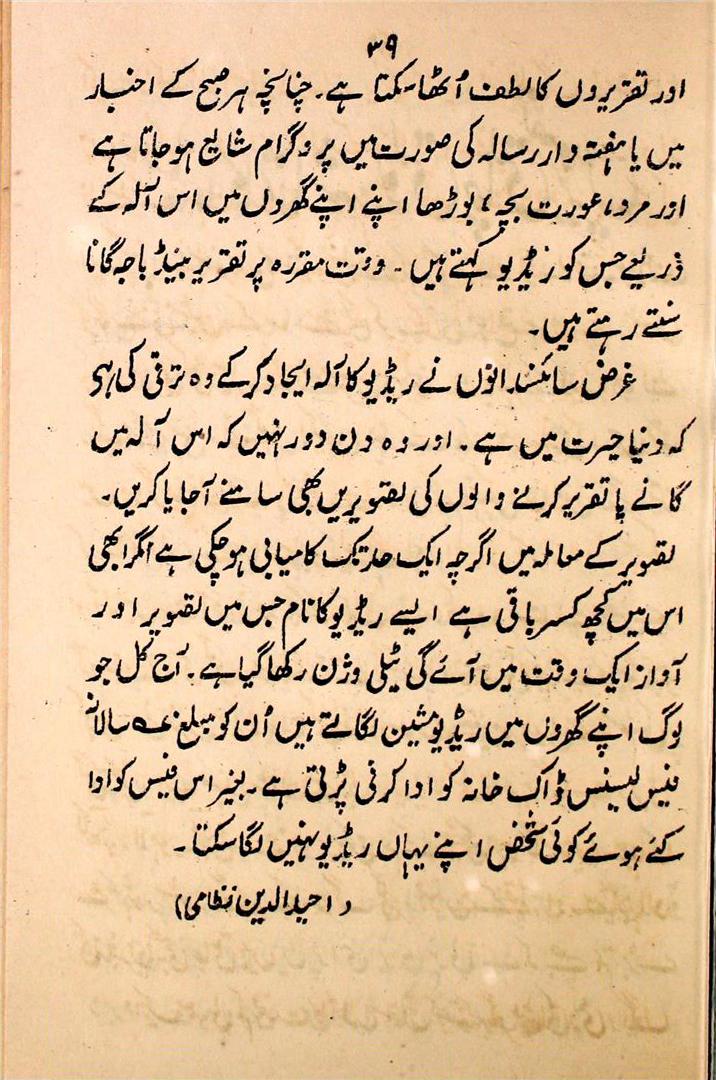 ۳۹
اور تقریروں کا لطف اُٹھا سکتا ہے۔ چنانچہ ہر صبح کے اخبار
میں یا ہفتہ وار رسالہ کی صورت میں پروگرام شایع ہو جاتا ہے
اور مرد، عورت بچہ، بوڑھا اپنے اپنے گھروں میں اس آلہ کے
ذریعے جس کو ریڈیو کہتے ہیں۔ وقت مقررہ پر تقریر بینڈ باجہ گانا
سنتے رہتے ہیں۔
غرض سائنسدانوں نے ریڈیو کا آلہ ایجاد کر کے وہ ترقی کی ہے
کہ دنیا حیرت میں ہے۔ اور وہ دن دور نہیں کہ اس آلہ میں
گانے یا تقریر کرنے والوں کی تصویریں بھی سامنے آجایا کریں۔
تصویر کے معاملہ میں اگرچہ ایک حد تک کامیابی ہو چکی ہے مگر ابھی
اس میں کچھ کسر باقی ہے ایسے ریڈیو کا نام جس میں تصویر اور
آواز ایک وقت میں آئے گی ٹیلی وژن رکھا گیا ہے۔ آج کل جو
لوگ اپنے گھروں میں ریڈیو مشین لگاتے ہیں اُن کو مبلغ سالانہ
فیس لیسنس ڈاک خانہ کو ادا کرنی پڑتی ہے۔ بغیر اس فیس کو ادا
کئے ہوئے کوئی شخص اپنے یہاں ریڈیو نہیں لگا سکتا۔
(احیدالدین نظامی)